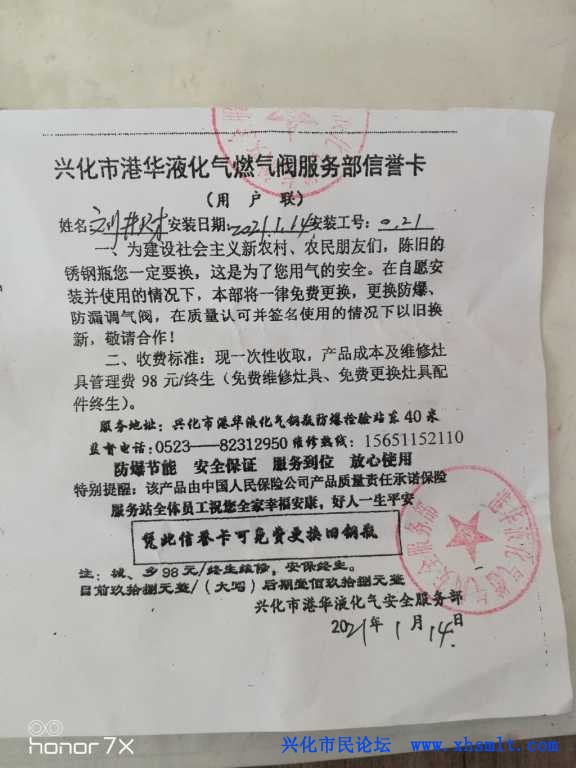 兴化市港华液化气燃气阀服务部信誉卡
(用 户 联)
姓名 安装日期:2021.1.14安装工号:0.21
一、为建设社会主义新农村、农民朋友们,陈旧的
锈钢瓶您一定要换,这是为了您用气的安全。在自愿安
装并使用的情况下,本部将一律免费更换,更换防爆、
防漏调气阀,在质量认可并签名使用的情况下以旧换
新,敬请合作!
二、收费标准:现一次性收取,产品成本及维修灶
具管理费 98 元/终生(免费维修灶具、免费更换灶具配
件终生)。
服务地址:兴化市港华液化气钢瓶防爆检验站东 40 米
监督电话:0523——82312950 维修热线:15651152110
防爆节能 安全保证 服务到位 放心使用
特别提醒:该产品由中国人民保险公司产品质量责任承诺保险
服务站全体员工祝您全家幸福安康,好人一生平安
凭此信誉卡可免费更换旧钢瓶
注:城、乡98元/终生维修,安保终生。
目前玖拾捌元整/(大写)后期壹佰玖拾捌元整
兴化市港华液化气安全服务部
2021年 1月 14日
honor 7X
兴化市民论坛 www.xhsmlt.com